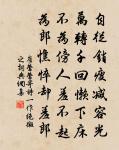 自從銷瘦減容光
萬轉千回懶下床
不為傍人羞不起
為郎憔悴卻羞郎
崔鶯鶯等詩一作絕微
之詞典調集